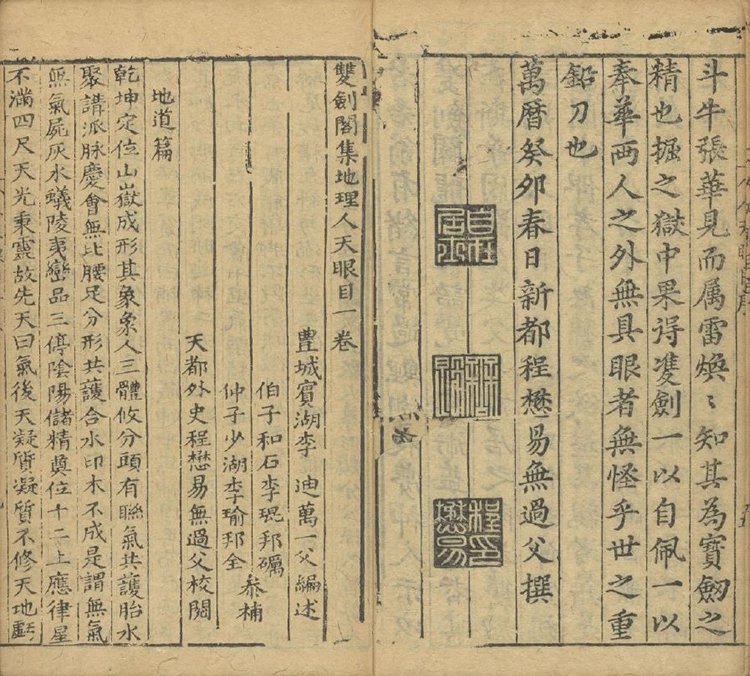 斗牛張華見而属雷煥〻知其為寳劔之
精也掘之獄中果得䨇劍一以自佩一以
奉華两人之外無具眼者無怪乎世之重
鉛刀也
萬曆癸卯春日新都程懋易無過父撰
程懋易印
雙劍閣集地理人天眼目一卷
豊城賓湖李 迪萬一父編述
伯子和石李琨邦礪
仲子少湖李瑜邦全
叅補
天都外史程懋易無過父校閱
地道篇
乾坤定位山嶽成形其象象人三體攸分頭有聮氣共護胎水
聚講派脉慶會無比腰足分形共護合水印木不成是謂無氣
無氣屍灰水蟻陵夷巒品三停陰陽儲精奠位十二上應律星
不滿四尺天光秉靈故先天曰氣後天凝質凝質不修天地虧